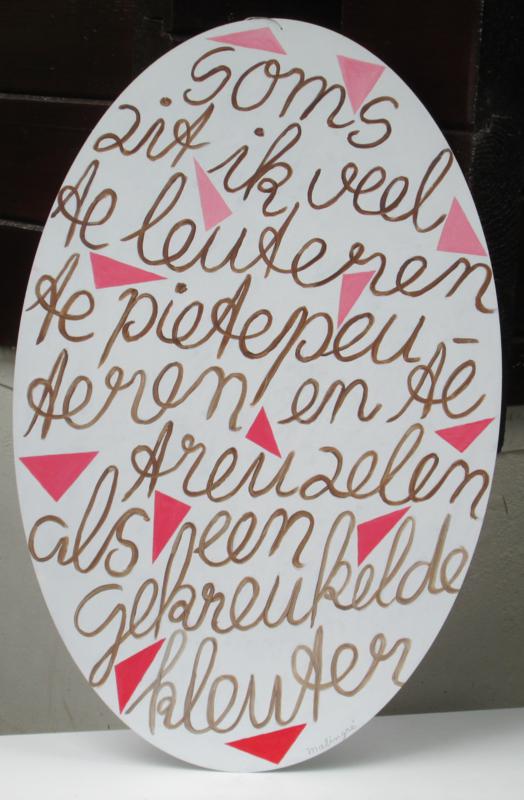 soms
zit ik veel
te leuteren
te pietepeu-
teren en te
treuzelen
als een
gekreukelde
kleuter
malingré